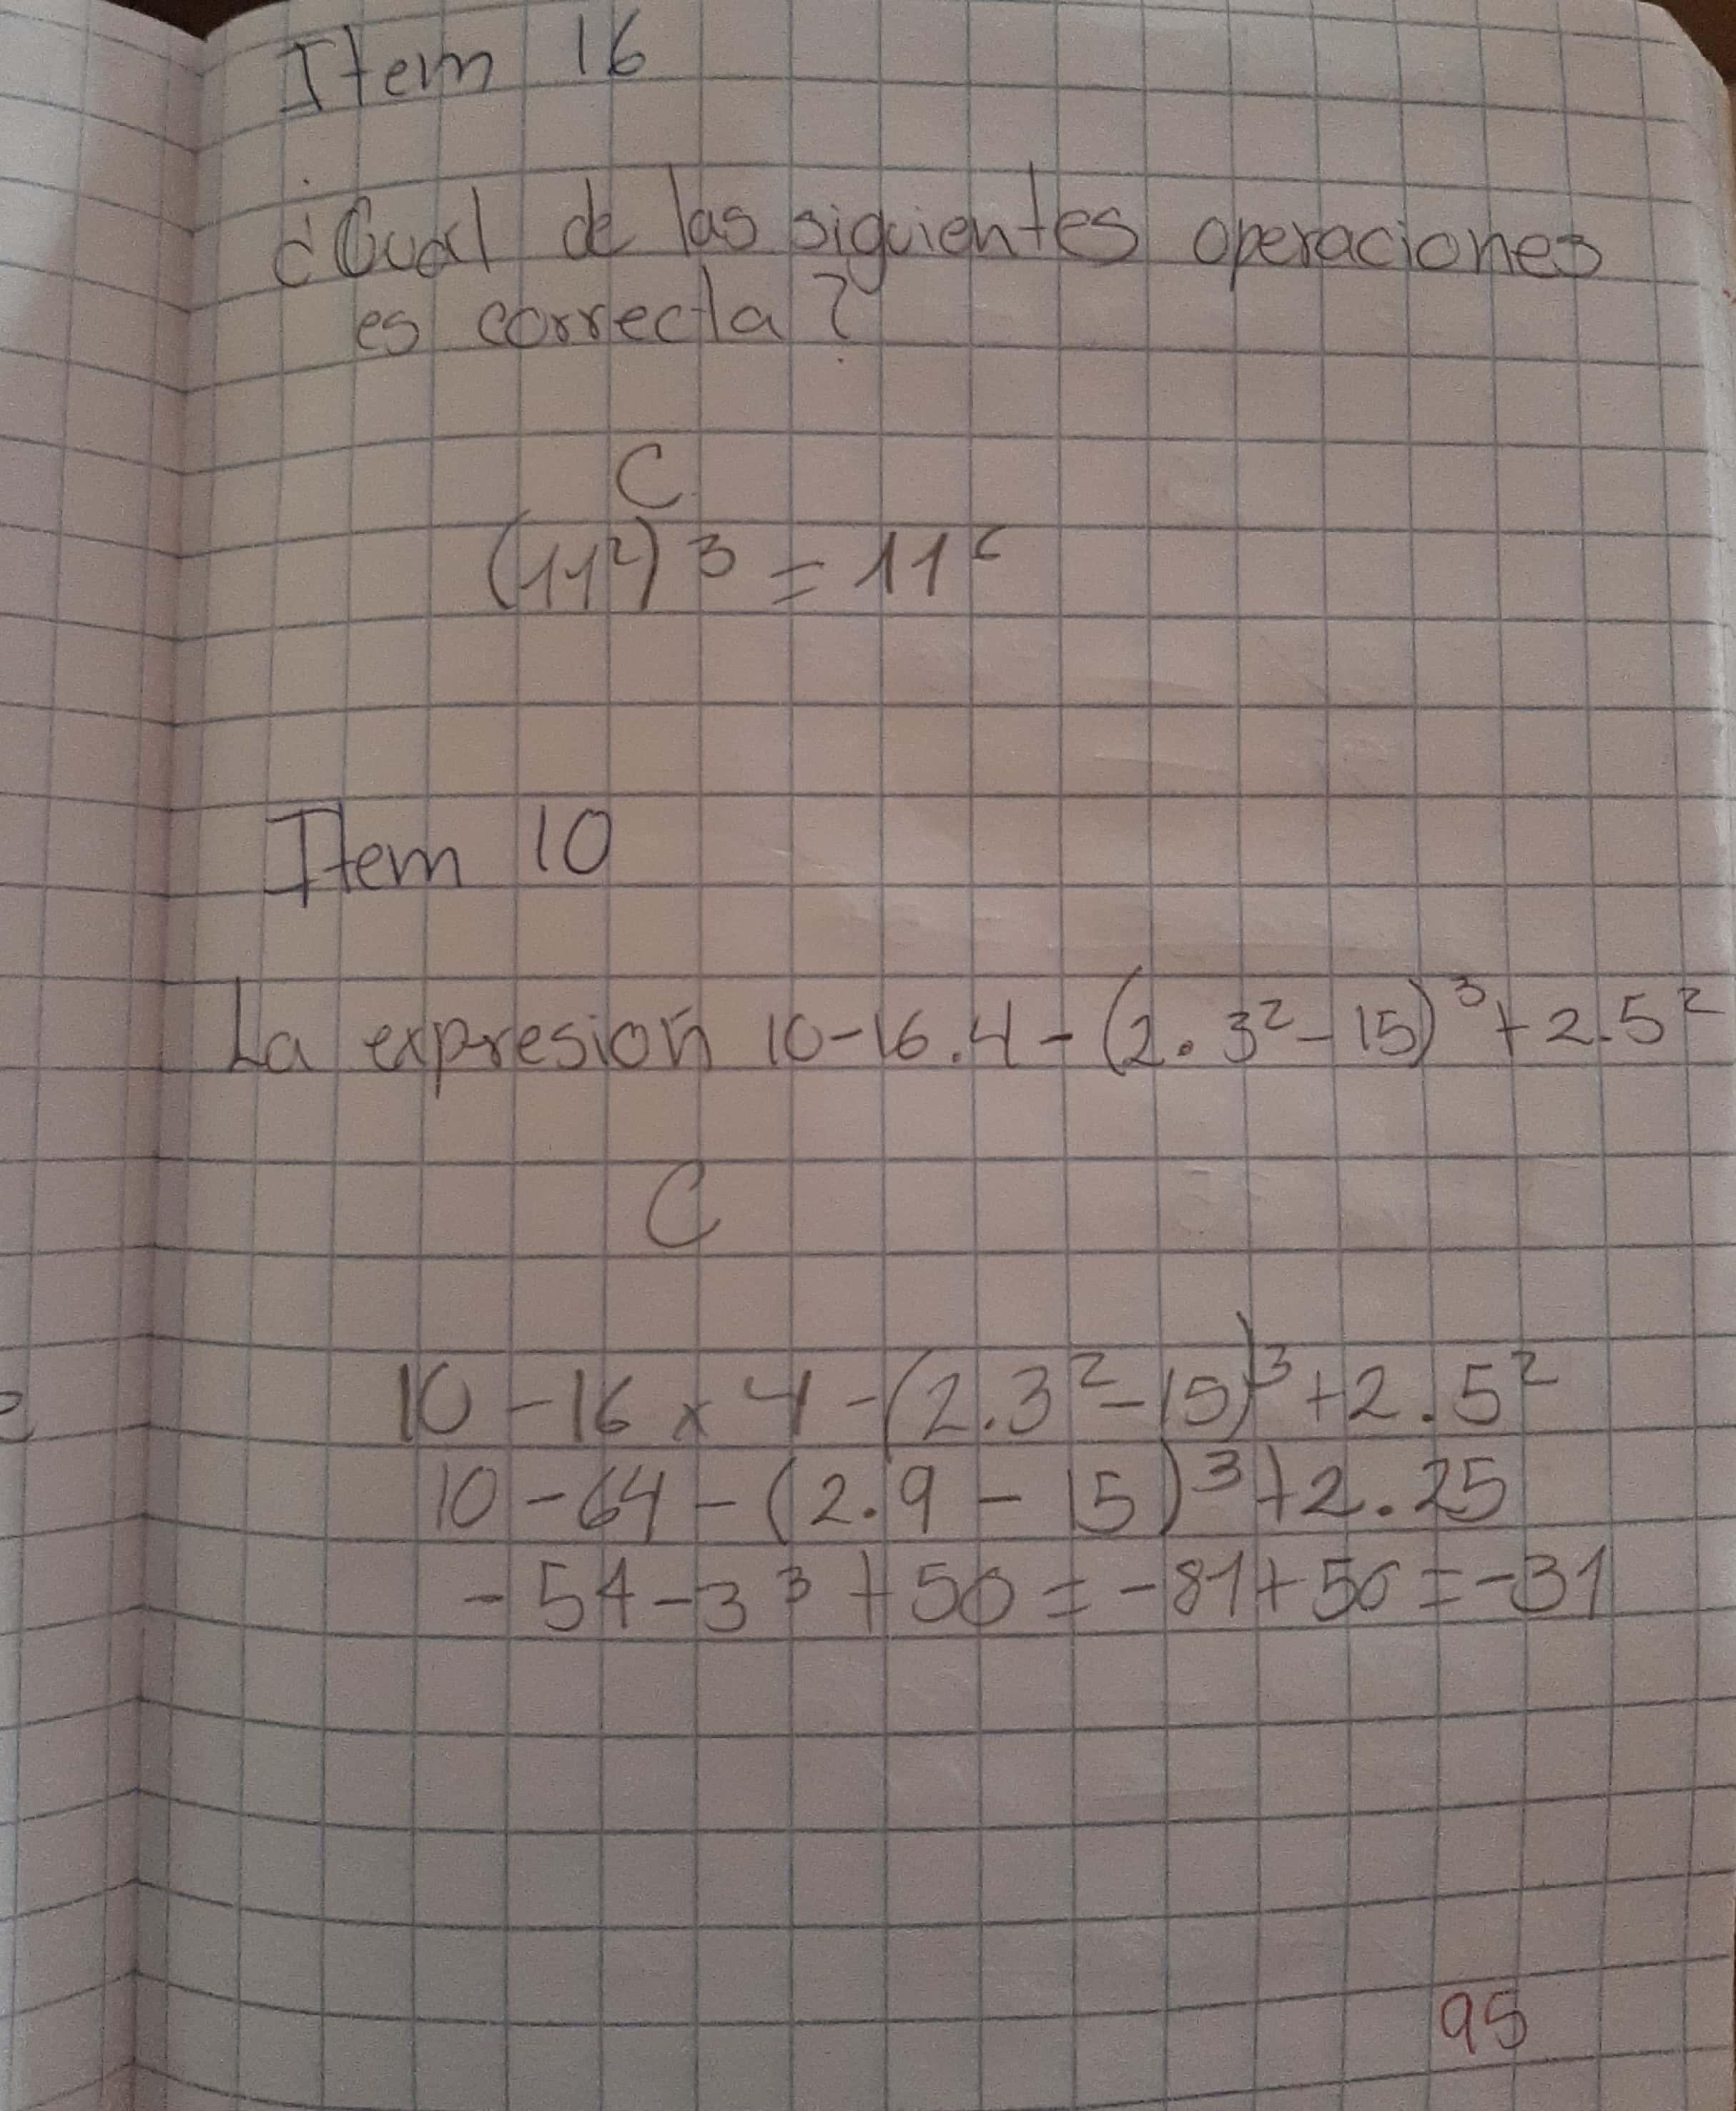 Item 16
¿Cual de las siguientes operaciones
es correcta?
C
(11²)3 = 11⁶
Item 10
La expresion 10-16.4-(2.3²-15)³+2.5²
C
10-16x4-(2.3²-15)³+2.5²
10-64-(2.9-15)³+2.25
-54-3³+50=-81+50=-31
95